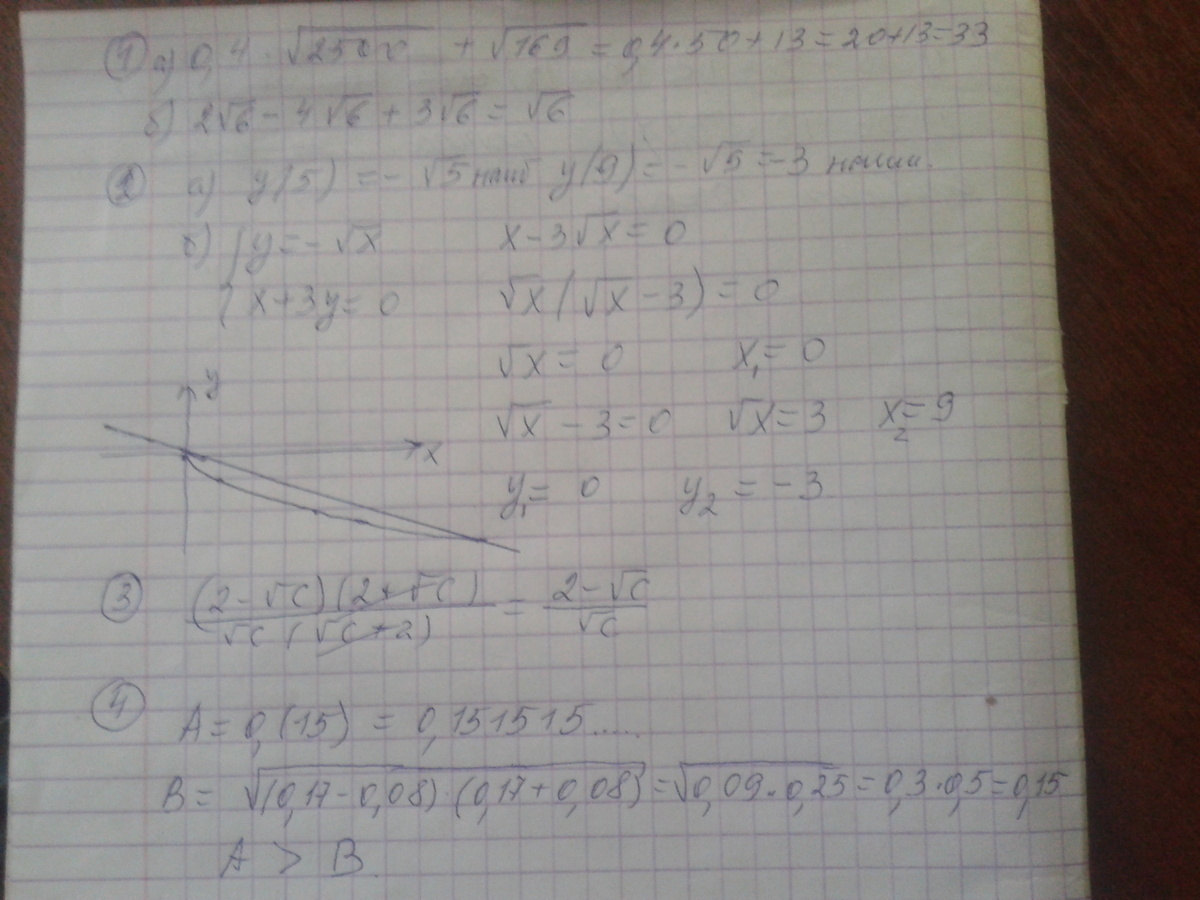 ① а) 0,4 · √2500 + √169 = 0,4·50+13=20+13=33
б) 2√6 - 4√6 + 3√6 = √6
② а) y(5) = -√5 наиб y(9) = -√5 = -3 наим.
б) { y = -√x    x - 3√x = 0
{ x + 3y = 0    √x (√x - 3) = 0
√x = 0    x₁ = 0
y
√x - 3 = 0    √x = 3    x₂ = 9
x
y₁ = 0    y₂ = -3
③ (2 - √c)(2 + √c) / √c (√c + 2) = 2 - √c / √c
④ A = 0,(15) = 0,151515.....
B = √(0,17 - 0,08)·(0,17 + 0,08) = √0,09·0,25 = 0,3·0,5 = 0,15
A > B.